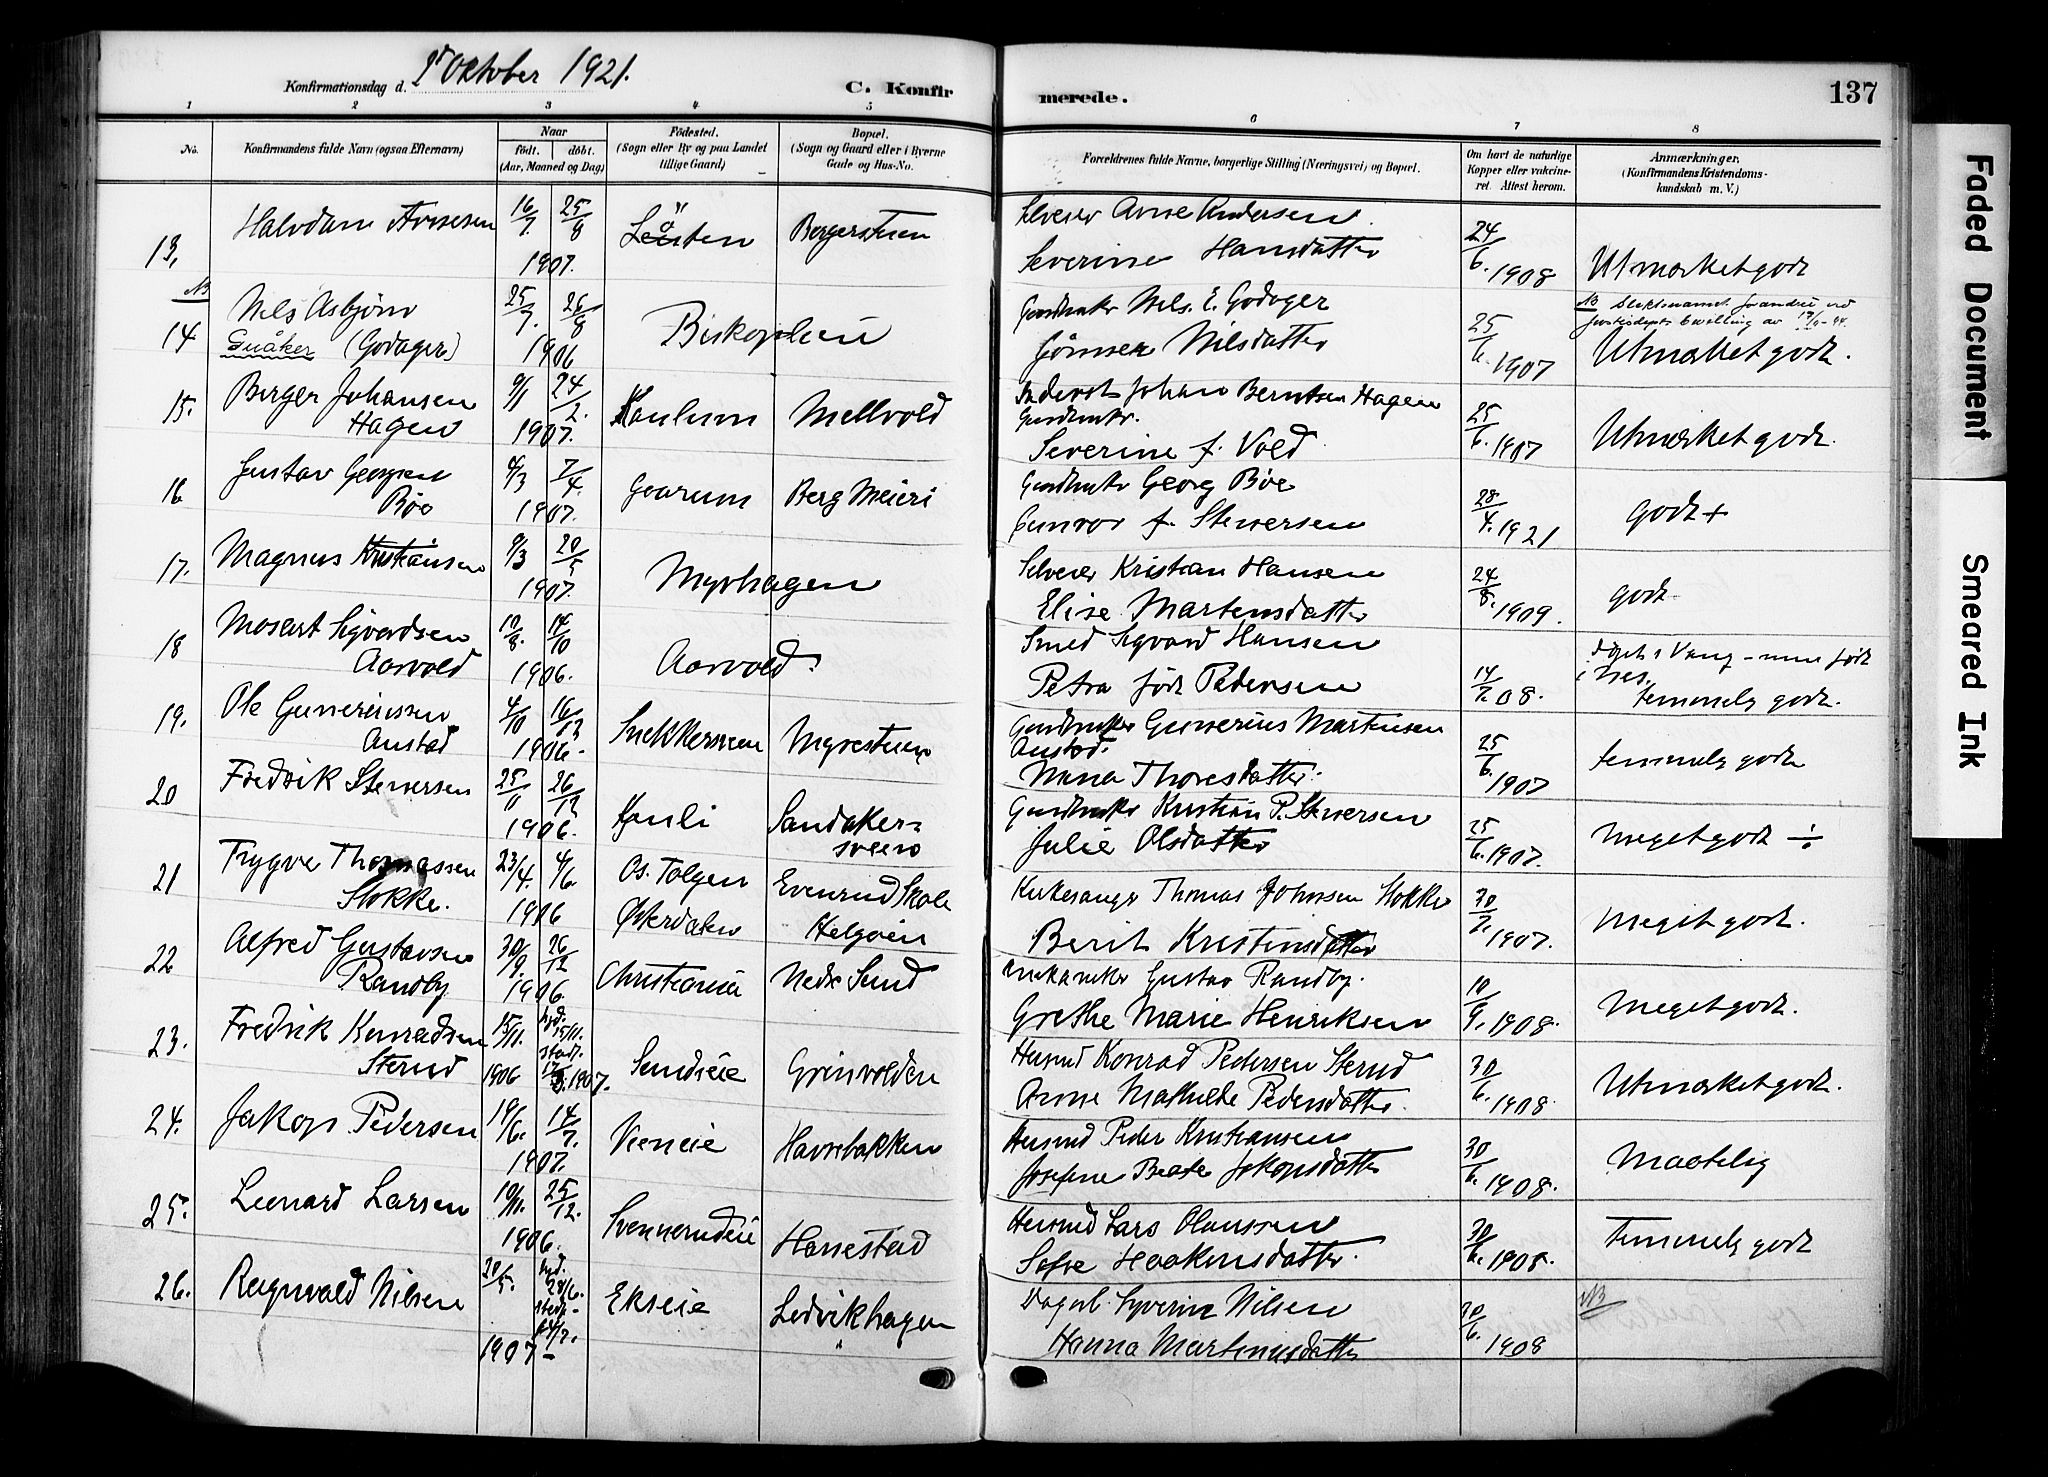 Konfirmationsdag d. 2 Oktober 1921. C. Konfirmerede. 137
1 2 3 4 5 6 7 8
No. Konfirmandens fulde Navn (ogsaa Efternavn) Naar født. døbt. (Aar, Maaned og Dag) Fødested. (Sogn eller By og paa Landet tillige Gaard) Bopæl. (Sogn og Gaard eller i Byerne Gade og Hus-No. Forældrenes fulde Navne, borgerlige Stilling (Næringsvei) og Bopæl. Om havt de naturlige Kopper eller vakcineret. Attest herom. Anmærkninger. (Konfirmandens Kristendomskundskab m. V.)
13. Halvdan Arnesen 16/7. 25/8 1907. Löiten Bergerstuen Arne Andersen. Severine Hansdatter 24/6. 1908 Utmærket godt
NB
14 Nils Asbjørn Guåker (Godager) 25/7. 26/8 1906 Biskoplien Gaardbruker Nils. E. Godager Nilsdatter 25/6. 1907 NB Slektsnavnet forandret ved bevilling av Utmærket godt.
15. Birger Johansen Hagen 9/1 24/2. 1907. Kaulum Mellvold Johan Berntsen Hagen Gaardbruker. Severine f. Vold 25/6. 1907 Utmærket godt.
16 Gustav Georgsen Bøe 4/3 7/4. 1907. Gaarum Berg Meieri Gaardbruker Georg Bøe Gunvor f. Steversen 28/4. 1921 godt +
17. Magnus Kristiansen 9/3 20/5 1907. Myrhagen Kristian Hansen Elise Martensdatter 24/8. 1909. godt
18 Mosart Sigvardsen Aarvold 10/8. 14/10 1906. Aarvold. Smed Sigvard Hansen Petra født Pedersen 14/7. 08. døpt i Vang - men født i Nes. temmelig godt.
19. Ole Guneriussen Anstad 4/10 16/12 1906. Snekkersveen Myrestuen Gaardbruker Gunerius Martinsen Anstad. Maria Thoresdatter. 25/6. 1907 temmelig godt
20 Fredrik Steversen 25/11 26/12 1906. Kauli Sandaker=
sveen Gaardbruker Kristian P. Steversen Julie Olsdatter 25/6. 1907. Meget godt ÷
21 Trygve Thomassen Stokke. 23/4. 4/6. 1906 Os. Tolgen Østerdalen Evenrud Skole Helgøen Kirkesanger Thomas Johnsen Stokke Berit Kristinsdatter 30/7. 1907. Meget godt.
22 Alfred Gustavsen Randby 30/9. 26/12 1906. Christiania Nedre Sund Mekaniker Gustav Randby. Grethe Marie Henriksen 10/9. 1908. Meget godt.
23. Fredrik Konradsen Sterud 15/11. 1906 hjd. 15/11. stadf. 17/3. 1907. Sundseie Grinvolden Husmd Konrad Pedersen Sterud Anne Mathilde Pedersdatter. 30/6. 1908. Utmærket godt.
24. Jakop Pedersen 19/6. 14/7. 1907. Vieneie Havrebakken Husmd Peder Kristiansen Josefine Beate Jakopsdatter 30/6. 1908. Maatelig
25. Leonard Larsen 19/11. 25/12. 1906. Svennerudeie Hanestad Husmd Lars Olaussen Sofie Haakensdatter. 30/6. 1908. Temmelig godt
26. Ragnvald Nilsen 20/5. hjd. 28/6. stadf. 1907 - Ekseie Ledvikhagen Dagarb. Syverin Nilsen Hanna Martinusdatter 30/6. 1908 NB
Faded Document
Smeared Ink